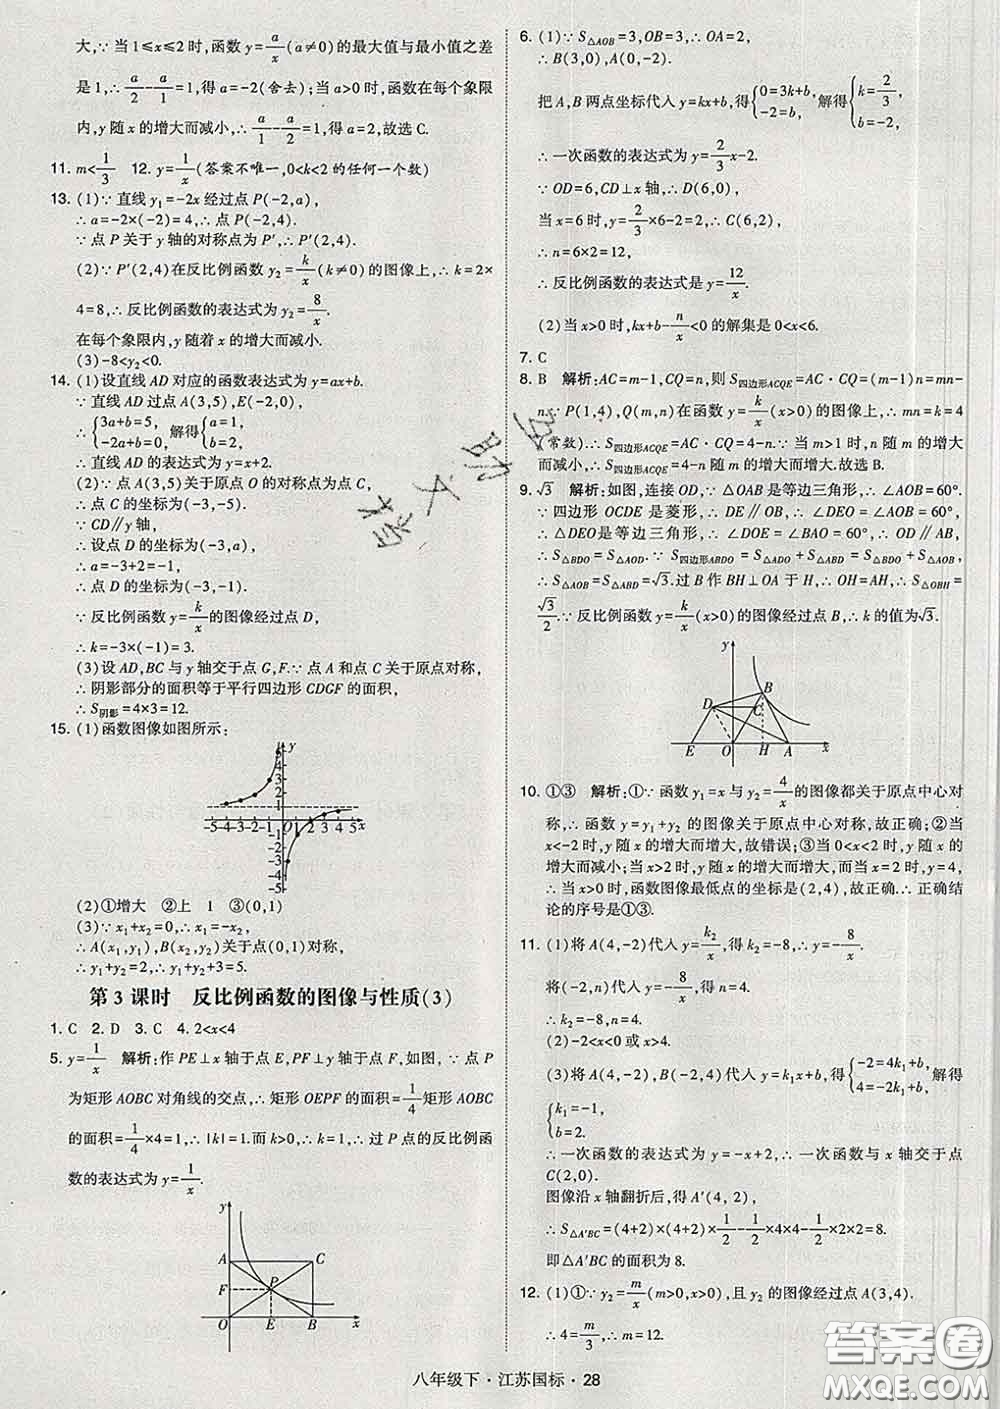 大,∵当1≤x≤2时,函数y=a/x(a≠0)的最大值与最小值之差
是1,∴a/2-a/1=1,得a=-2(舍去);当a>0时,函数在每个象限
内,y随x的增大而减小,∴a/1-a/2=1,得a=2,故选C.
11. m<1/3 12. y=1/x(答案不唯一,0<k<2的任何一个数)
13. (1)∵直线y₁=-2x经过点P(-2,a),
∴a=-2×(-2)=4,∴点P(-2,4).
∵点P关于y轴的对称点为P′,∴P′(2,4).
(2)∵P′(2,4)在反比例函数y₂=k/x(k≠0)的图像上,∴k=2×
4=8,∴反比例函数的表达式为y₂=8/x.
在每个象限内,y随着x的增大而减小.
(3)-8<y₂<0.
14. (1)设直线AD对应的函数表达式为y=ax+b.
∵直线AD过点A(3,5),E(-2,0),
∴{3a+b=5, -2a+b=0, 解得{a=1, b=2.
∴直线AD的表达式为y=x+2.
(2)∵点A(3,5)关于原点O的对称点为点C,
∴点C的坐标为(-3,-5).
∵CD∥y轴,
∴设点D的坐标为(-3,a),
∴a=-3+2=-1,
∴点D的坐标为(-3,-1).
∵反比例函数y=k/x的图像经过点D,
∴k=-3×(-1)=3.
(3)设AD,BC与y轴交于点G,F.∵点A和点C关于原点对称,
∴阴影部分的面积等于平行四边形CDGF的面积,
∴S阴影=4×3=12.
15. (1)函数图像如图所示:
y
5
4
3
2
1
-5-4-3-2-1 O 1 2 3 4 5 x
-1
-2
-3
-4
-5
(2)①增大 ②上 1 ③(0,1)
(3)∵x₁+x₂=0,∴x₁=-x₂,
∴A(x₁,y₁),B(x₂,y₂)关于点(0,1)对称,
∴y₁+y₂=2,∴y₁+y₂+3=5.
第3课时 反比例函数的图像与性质(3)
1. C 2. D 3. C 4. 2<x<4
5. y=1/x 解析:作PE⊥x轴于点E,PF⊥y轴于点F,如图,∵点P
为矩形AOBC对角线的交点,∴矩形OEPF的面积=1/4矩形AOBC
的面积=1/4×4=1,∴|k|=1.而k>0,∴k=1,∴过P点的反比例函
数的表达式为y=1/x.
y
A C
F P
O E B x
6. (1)∵S△AOB=3,OB=3,∴OA=2,
∴B(3,0),A(0,-2).
把A,B两点坐标代入y=kx+b,得{0=3k+b, -2=b, 解得{k=2/3, b=-2.
∴一次函数的表达式为y=2/3x-2.
∵OD=6,CD⊥x轴,∴D(6,0),
当x=6时,y=2/3×6-2=2,∴C(6,2),
∴n=6×2=12,
∴反比例函数的表达式是y=12/x.
(2)当x>0时,kx+b-n/x<0的解集是0<x<6.
7. C
8. B 解析:AC=m-1,CQ=n,则S四边形ACQE=AC·CQ=(m-1)n=mn-
n.∵P(1,4),Q(m,n)在函数y=k/x(x>0)的图像上,∴mn=k=4
(常数).∴S四边形ACQE=AC·CQ=4-n.∵当m>1时,n随m的增大
而减小,∴S四边形ACQE=4-n随m的增大而增大.故选B.
9. √3 解析:如图,连接OD,∵△OAB是等边三角形,∴∠AOB=60°.
∵四边形OCDE是菱形,∴DE∥OB,∴∠DEO=∠AOB=60°,
∴△DEO是等边三角形,∴∠DOE=∠BAO=60°,∴OD∥AB,
∴S△BDO=S△AOD.∵S四边形ABDO=S△ADO+S△ABD=S△BDO+S△AOB,
∴S△AOB=S△ABD=√3.过B作BH⊥OA于H,∴OH=AH,∴S△OBH=
√3/2.∵反比例函数y=k/x(x>0)的图像经过点B,∴k的值为√3.
y
D C B
E O H A x
10. ①③ 解析:①∵函数y₁=x与y₂=4/x的图像都关于原点中心对
称,∴函数y=y₁+y₂的图像关于原点中心对称,故正确;②当
x<-2时,y随x的增大而增大,故错误;③当0<x<2时,y随x的
增大而减小;当x>2时,y随x的增大而增大,而当x=2时,y=4,
∴当x>0时,函数图像最低点的坐标是(2,4),故正确.∴正确结
论的序号是①③.
11. (1)将A(4,-2)代入y=k₂/x,得k₂=-8,∴y=-8/x.
将(-2,n)代入y=-8/x,得n=4.
∴k₂=-8,n=4.
(2)-2<x<0或x>4.
(3)将A(4,-2),B(-2,4)代入y=k₁x+b,得{-2=4k₁+b, 4=-2k₁+b, 解得
{k₁=-1, b=2.
∴一次函数的表达式为y=-x+2,∴一次函数与x轴交于点
C(2,0).
图像沿x轴翻折后,得A′(4,2),
∴S△A′BC=(4+2)×(4+2)×1/2-1/2×4×4-1/2×2×2=8.
即△A′BC的面积为8.
12. (1)①∵y₂=m/x(m>0,x>0),且y₂的图像经过点A(3,4).
∴4=m/3,∴m=12.
八年级下·江苏国标·28
答案圈
MXQE.COM